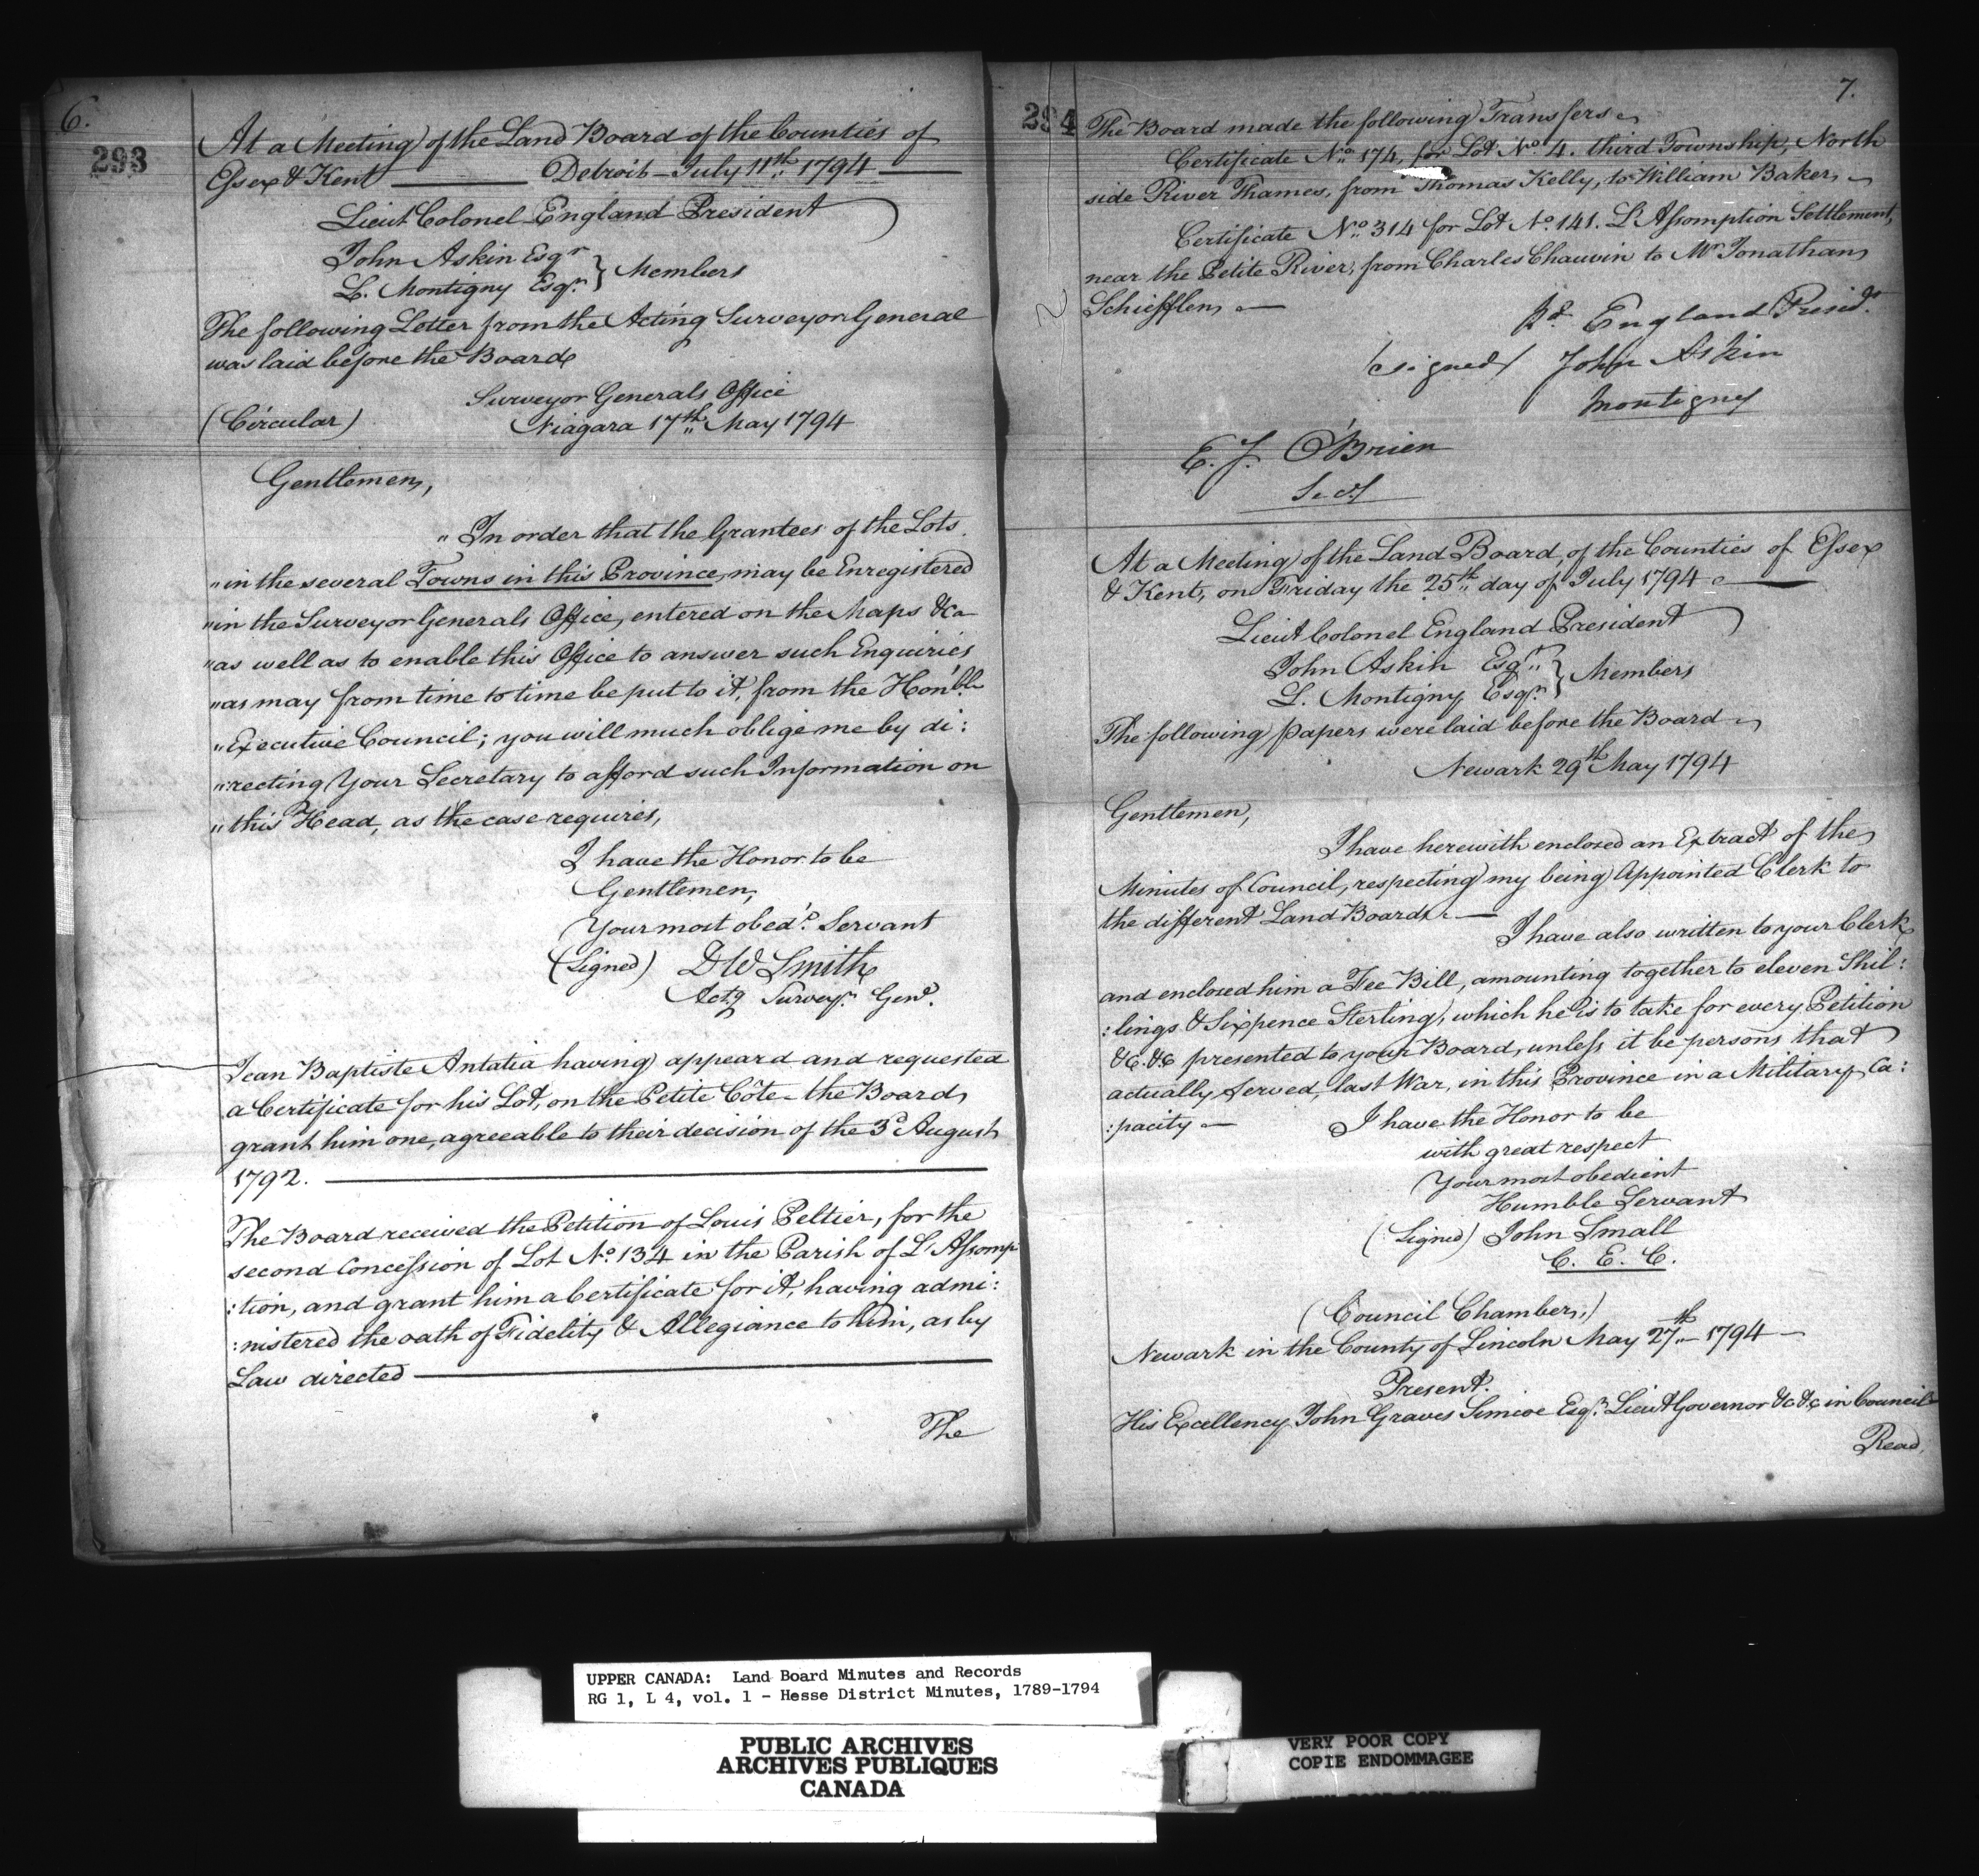 6.
293
At a Meeting of the Land Board of the Counties of
Essex & Kent — Detroit – July 11th 1794 —
Lieut Colonel England President
John Askin Esqr
L. Montigny Esqr. } Members
The following Letter from the Acting Surveyor General
was laid before the Board
Surveyor Generals Office
(Circular) Niagara 17th May 1794
Gentlemen,
" In order that the Grantees of the Lots
" in the several Towns in this Province, may be Enregistered
" in the Surveyor Generals Office, entered on the Maps &ca
" as well as to enable this Office to answer such Enquiries
" as may from time to time be put to it, from the Honble
" Executive Council; you will much oblige me by di:
":recting Your Secretary to afford such Information on
" this Head, as the case requires,
I have the Honor to be
Gentlemen,
Your most obedt. Servant
(Signed) D W Smith
Actg Surveyr. Genl.
Jean Baptiste Antatia having appeard and requested
a Certificate for his Lot, on the Petite Côte – the Board
grant him one, agreeable to their decision of the 3d August
1792. —
The Board received the Petition of Louis Peltier, for the
second Concession of Lot No. 134 in the Parish of L'Assomp
:tion, and grant him a Certificate for it, having admi:
:nistered the oath of Fidelity & Allegiance to him, as by
Law directed —
The
7.
294
The Board made the following Transfers
Certificate No. 174, for Lot No. 4. third Township, North
side River Thames, from Thomas Kelly, to William Baker,
Certificate No. 314 for Lot No. 141. L'Assomption Settlement,
near the Petite River, from Charles Chauvin to Mr Jonathan
Schiefflen —
Rd. England Presidt.
(signed) John Askin
Montigny
E. J. O'Brien
Secy
At a Meeting of the Land Board, of the Counties of Essex
& Kent, on Friday the 25th day of July 1794 —
Lieut Colonel England President
John Askin Esqr.
L. Montigny Esqr. } Members
The following papers were laid before the Board
Newark 29th May 1794
Gentlemen,
I have herewith enclosed an Extract of the
Minutes of Council, respecting my being Appointed Clerk to
the different Land Boards. —
I have also written to your Clerk
and enclosed him a Fee Bill, amounting together to eleven Shil:
:lings & Sixpence Sterling, which he is to take for every Petition
&c. &c presented to your Board, unless it be persons that
actually served, last War, in this Province in a Military Ca:
:pacity — I have the Honor to be
with great respect
Your most obedient
Humble Servant
(Signed) John Small
C. E. C.
(Council Chamber.)
Newark in the County of Lincoln May 27th – 1794 –
Present.
His Excellency John Graves Simcoe Esqr. Lieut Governor &c &c in Council
Read,
UPPER CANADA: Land Board Minutes and Records
RG 1, L 4, vol. 1 - Hesse District Minutes, 1789-1794
PUBLIC ARCHIVES
ARCHIVES PUBLIQUES
CANADA
VERY POOR COPY
COPIE ENDOMMAGEE